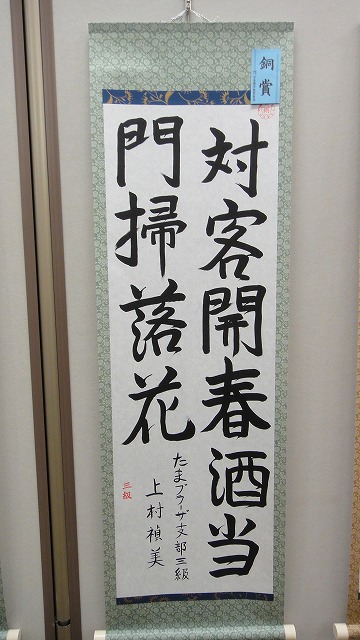 対客開春酒当
門掃落花
たまプラーザ支部三級
上村禎美
三級
銅賞